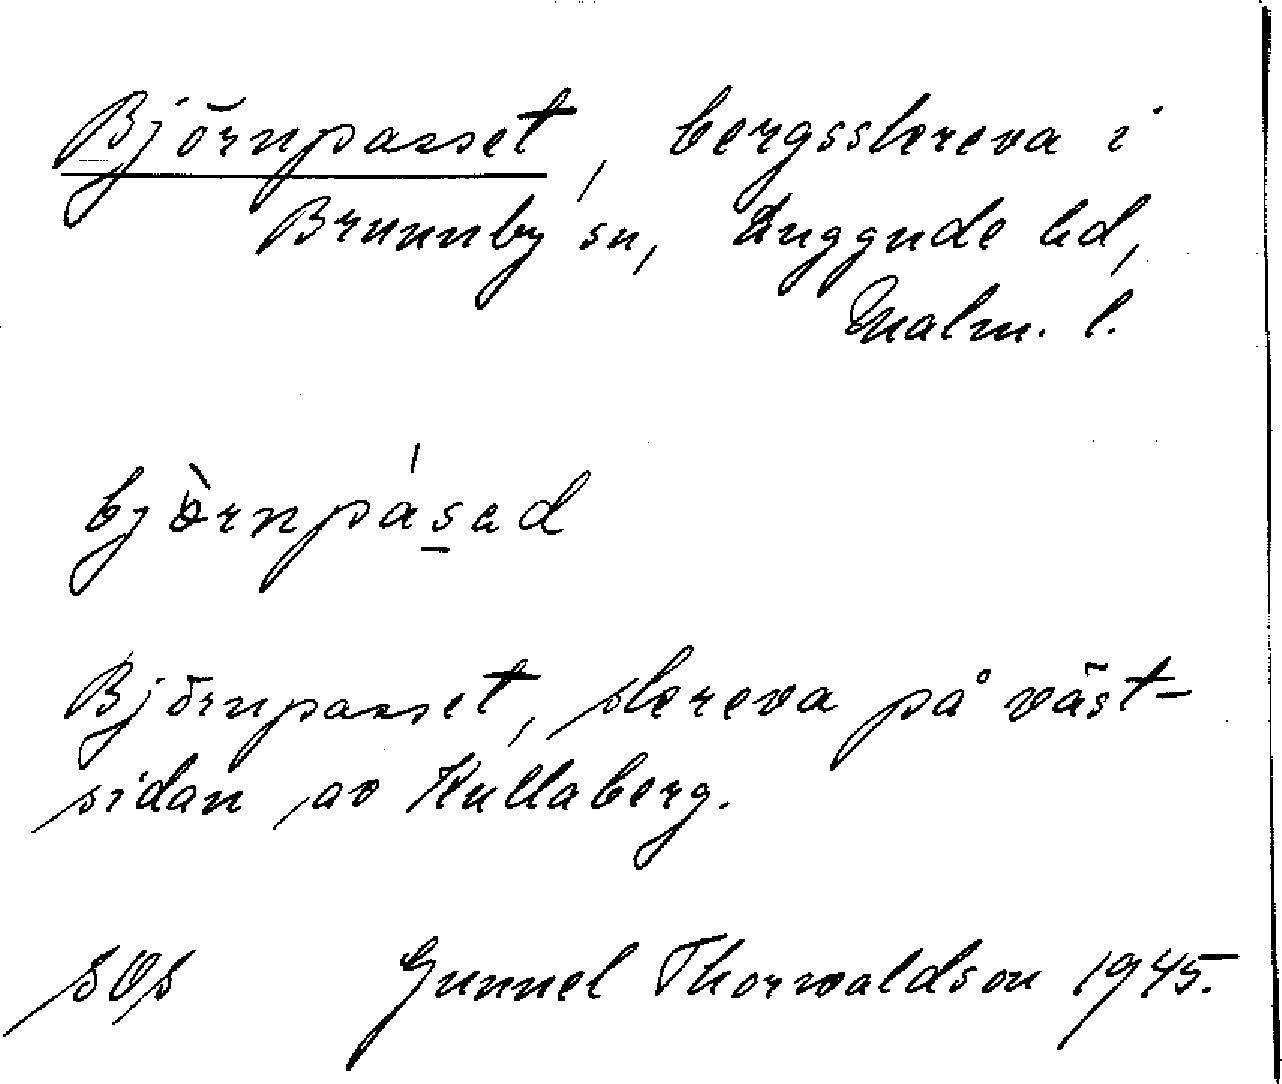 Björnpasset, bergsskreva i
Brunnby sn, Luggude hd,
Malm. l.
björnpásad
Björnpasset, skreva på väst-
sidan av Kullaberg.
SOS Gunnel Thorwaldson 1945.